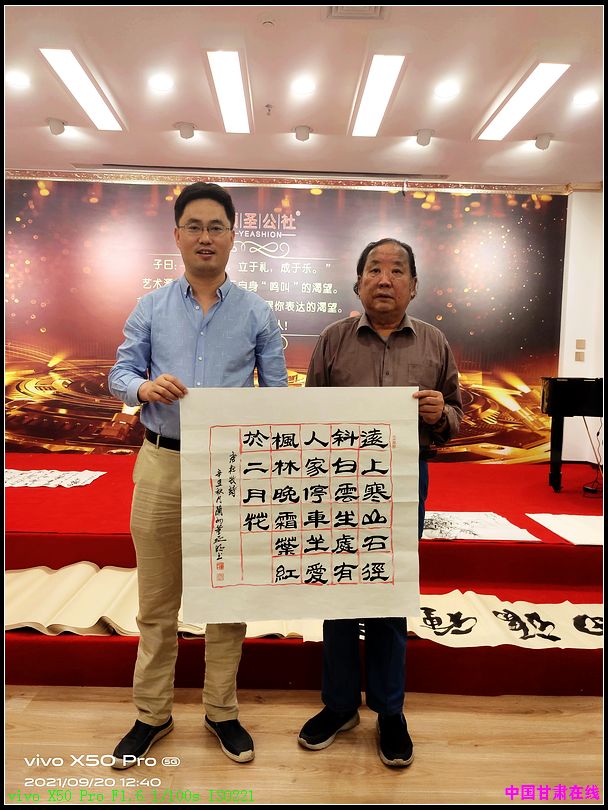 圣公社
YEASHION
子曰：
立于礼，成于乐。”
艺术
自身“鸣叫”的渴望。
你表达的渴望。
人！
遠上寒山石徑
斜白雲生處有
人家停車坐愛
楓林晚霜葉紅
於二月花
唐杜牧詩
辛丑秋月蘭州
vivo X50 Pro 5G
2021/09/20 12:40
vivo X50 Pro F1.6 1/100s ISO221
中国甘肃在线